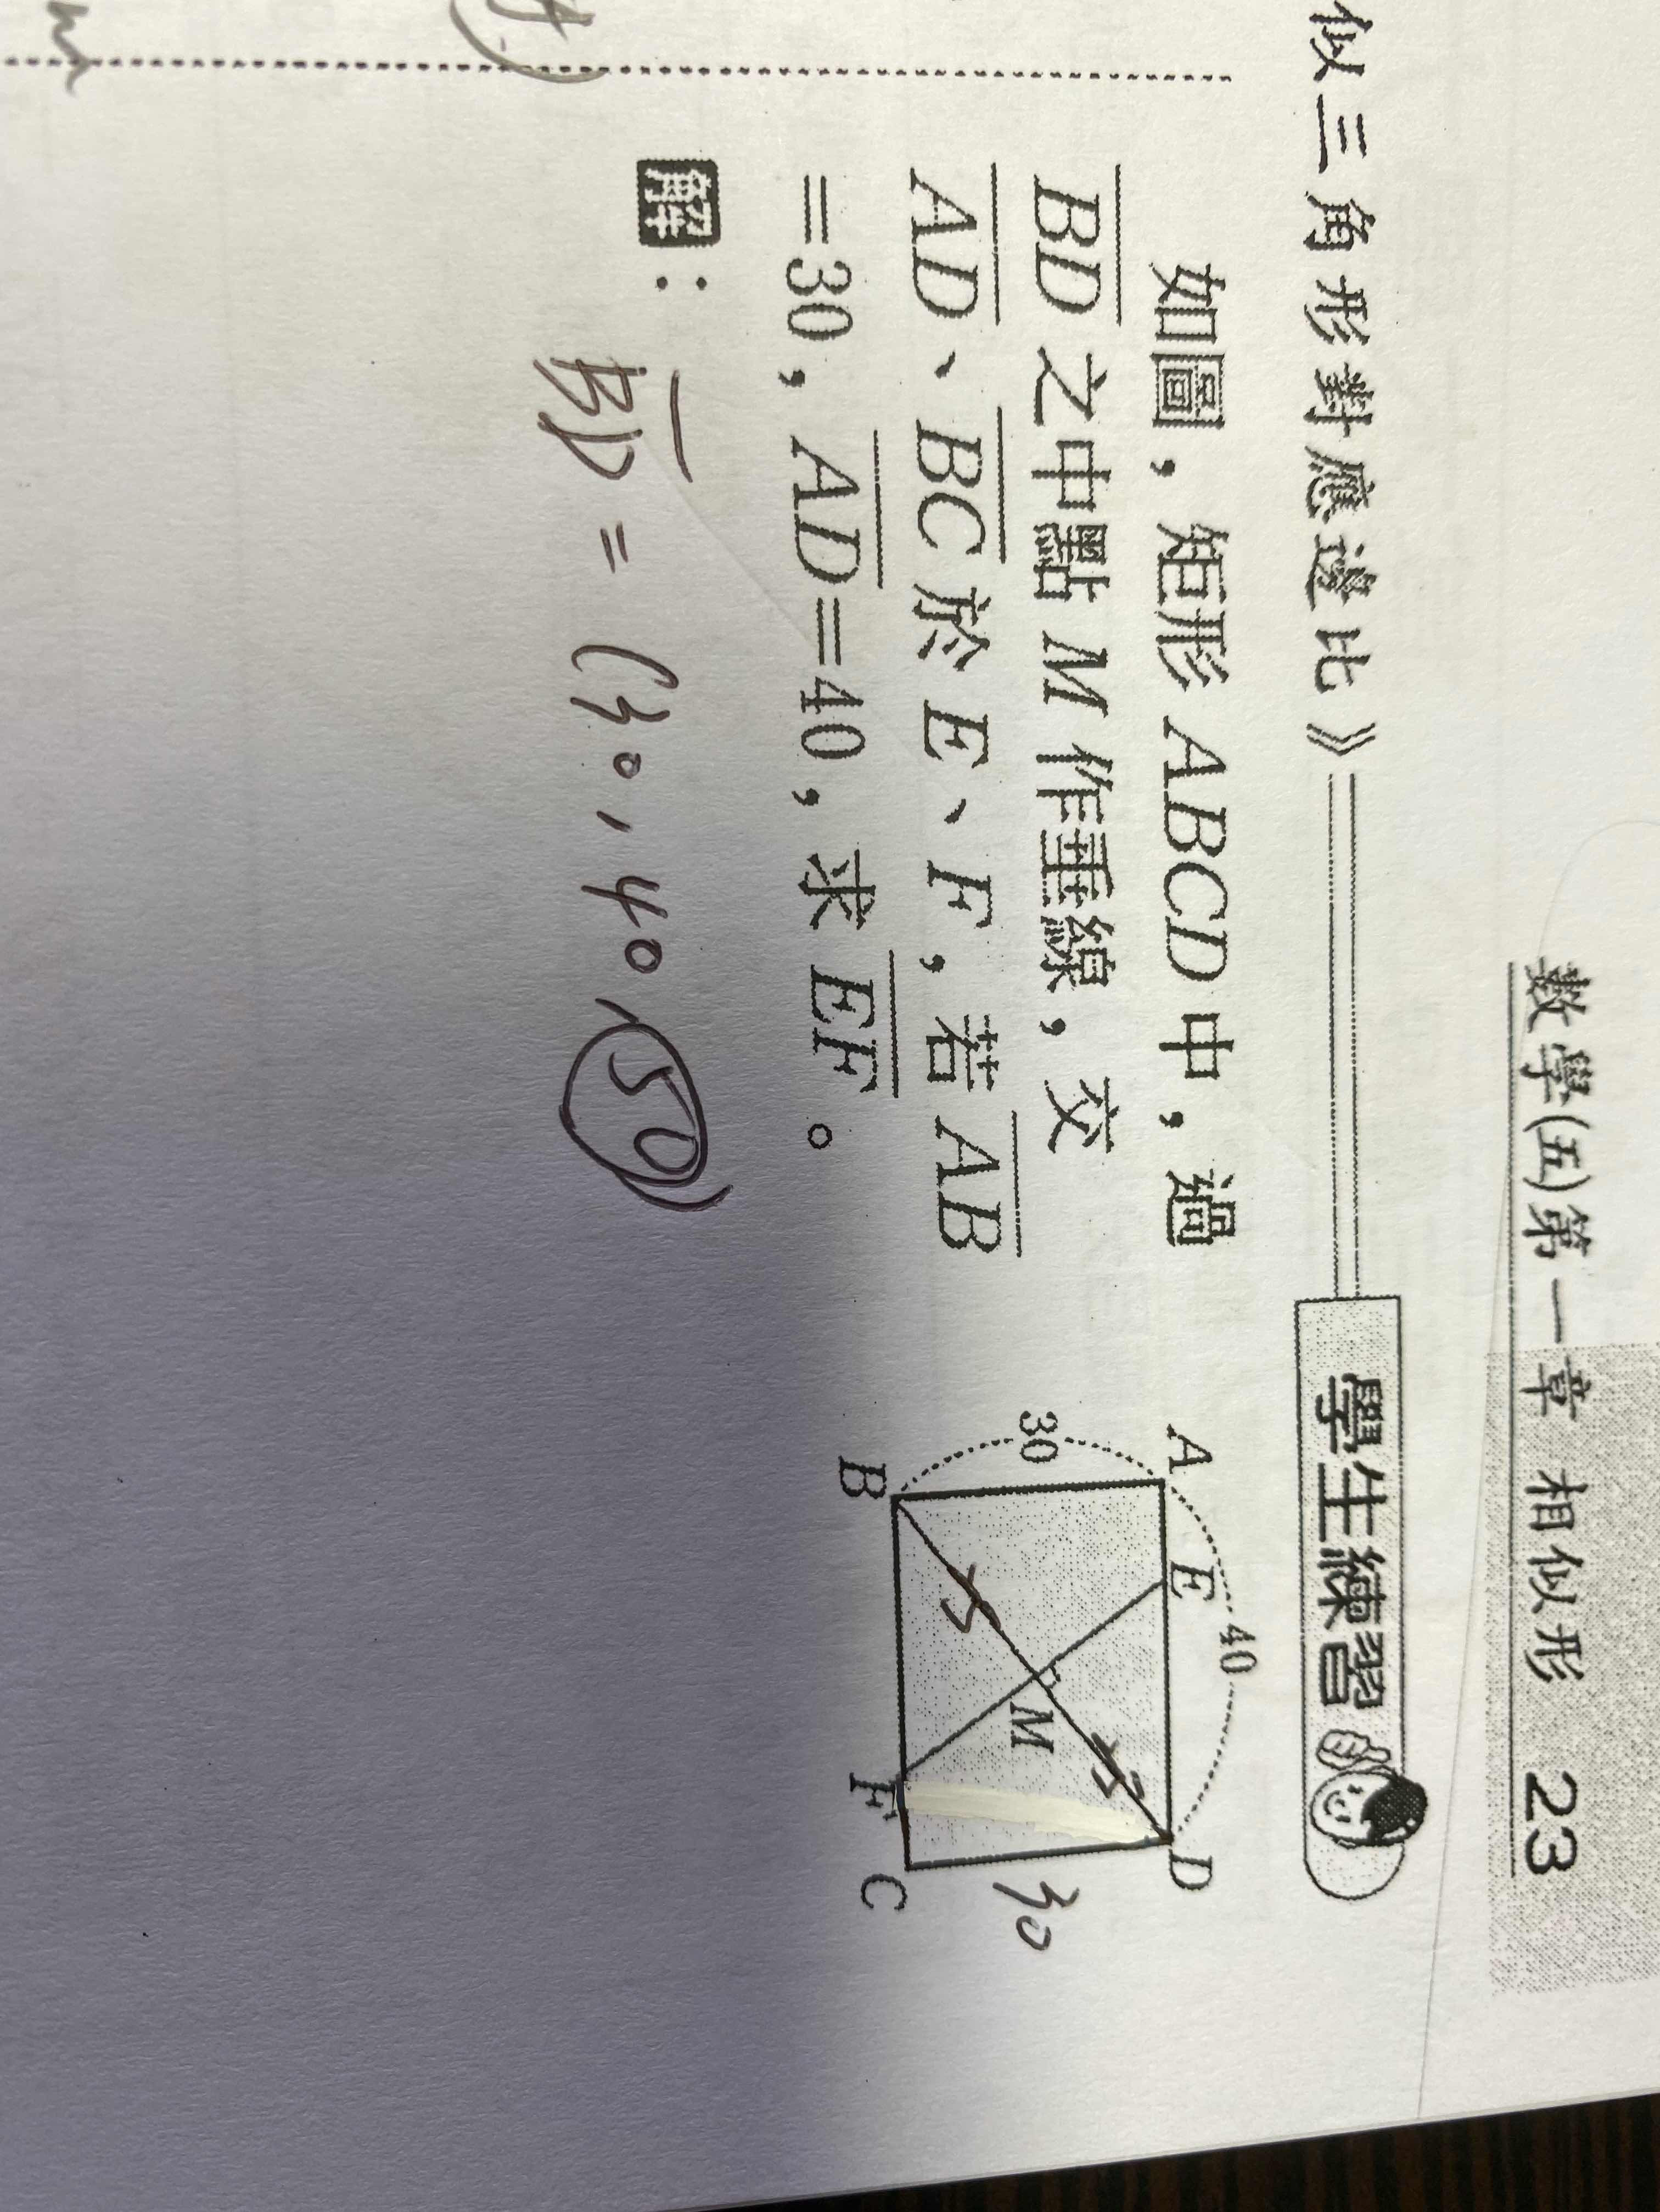 數學(五)第一章 相似形 23
似三角形對應邊比》
學生練習
如圖，矩形ABCD中，過
BD之中點M作垂線，交
AD、BC於E、F，若AB
=30，AD=40，求EF。
A
E
D
40
30
M
30
B
F
C
解：
BD = (30,40,50)